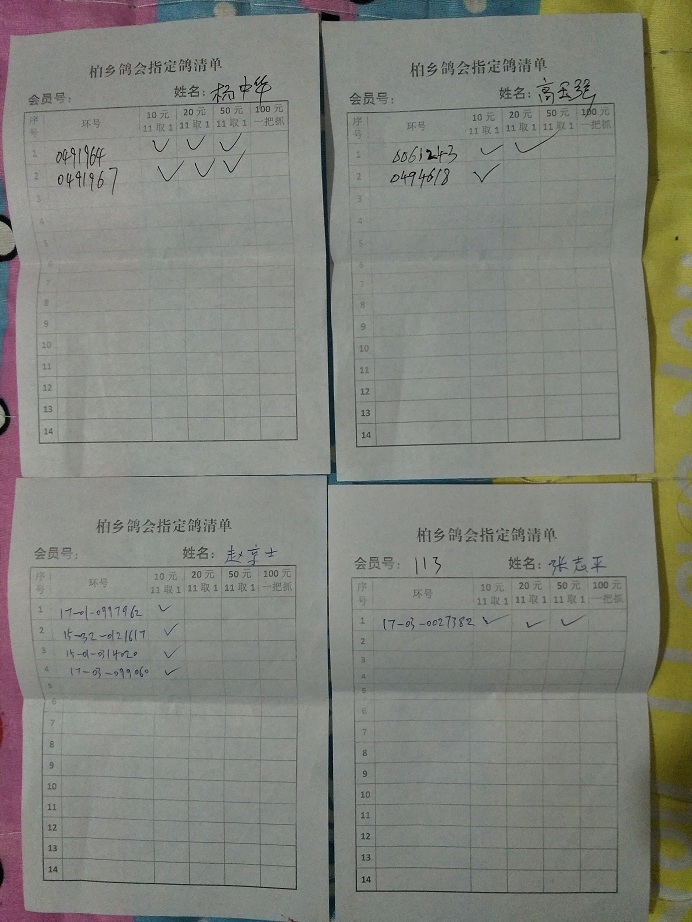 柏乡鸽会指定鸽清单
会员号： 姓名：杨中华
序号 环号 10 元 11 取 1 20 元 11 取 1 50 元 11 取 1 100 元 一把抓
1 0491964 ✓ ✓ ✓
2 0491967 ✓ ✓ ✓
3
4
5
6
7
8
9
10
11
12
13
14
柏乡鸽会指定鸽清单
会员号： 姓名：高玉强
序号 环号 10 元 11 取 1 20 元 11 取 1 50 元 11 取 1 100 元 一把抓
1 0061243 ✓ ✓
2 0494618 ✓
3
4
5
6
7
8
9
10
11
12
13
14
柏乡鸽会指定鸽清单
会员号： 姓名：赵京士
序号 环号 10 元 11 取 1 20 元 11 取 1 50 元 11 取 1 100 元 一把抓
1 17-01-0997962 ✓
2 15-032-0121617 ✓
3 15-01-0314020 ✓
4 17-03-099060 ✓
5
6
7
8
9
10
11
12
13
14
柏乡鸽会指定鸽清单
会员号： 113 姓名：张志平
序号 环号 10 元 11 取 1 20 元 11 取 1 50 元 11 取 1 100 元 一把抓
1 17-03-0027382 ✓ ✓ ✓
2
3
4
5
6
7
8
9
10
11
12
13
14